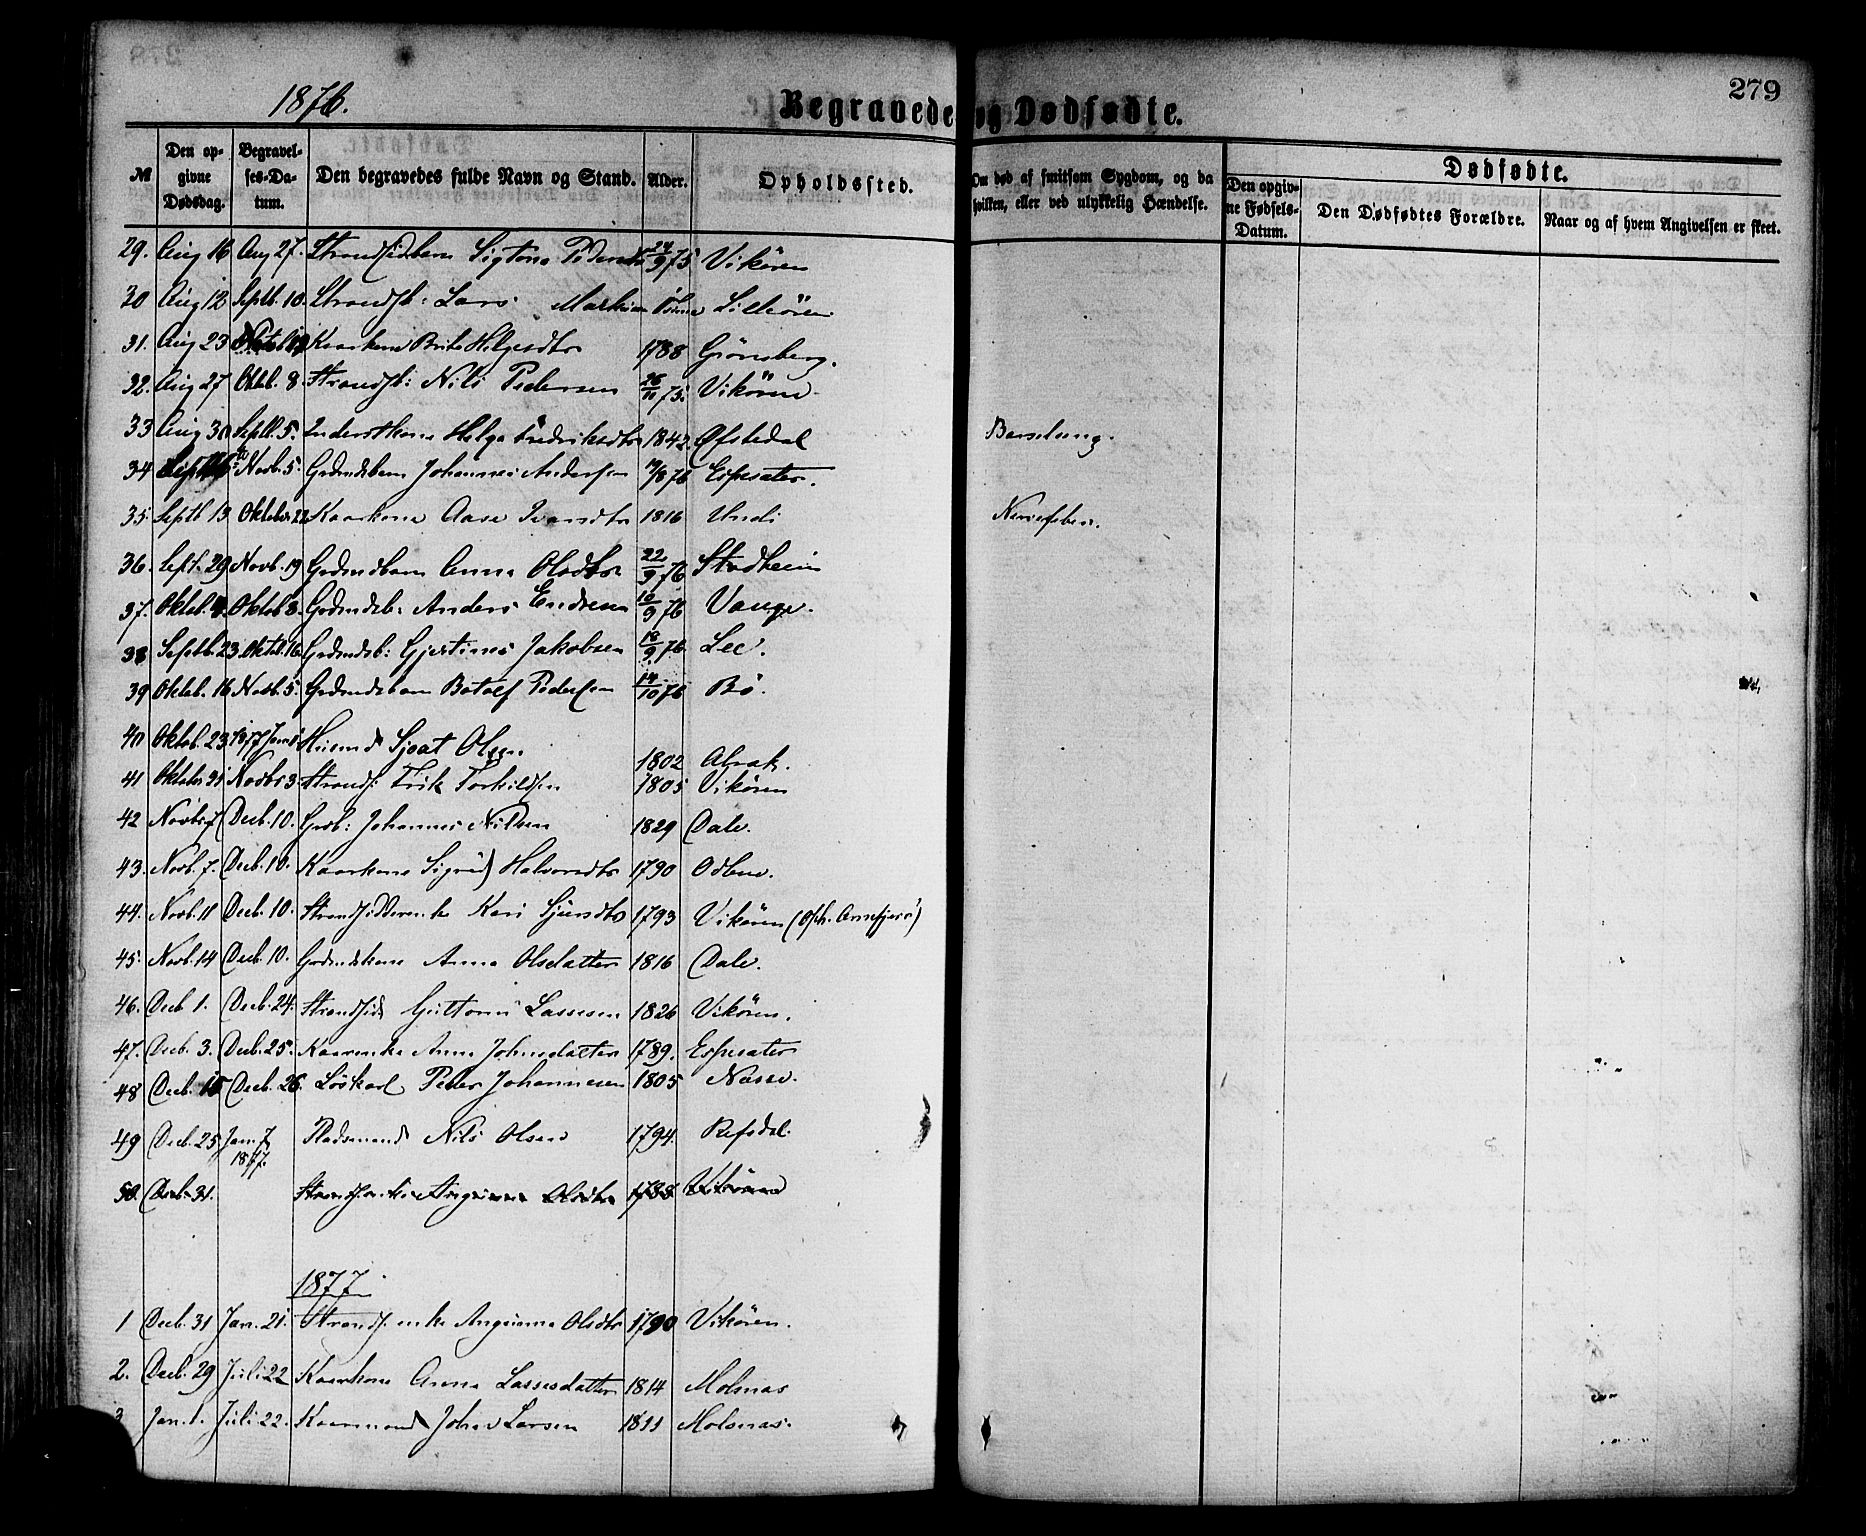 279
1876.
Begravede og Dødfødte.
№ Den opgivne Dødsdag. Begravelses-Datum. Den begravedes fulde Navn og Stand. Alder. Opholdssted. Om død af smitsom Sygdom, og da hvilken, eller ved ulykkelig Hændelse. Dødfødte.
Den opgivne Fødsels-Datum. Den Dødfødtes Forældre. Naar og af hvem Angivelsen er skeet.
29. Aug 16 Aug 27. Strandsidebarn 24/9 75 Vikören
30 Aug 12 Septb. 10. Strandsb: Lars
31. Aug 23 Kaarkone Brite Helgesdtr 1788 Grönsberg.
32. Aug 27 Oktb. 8 Strandsb: Nils Pedersen 26/11 75. Vikören
33 Aug 30 Septb. 5. Helga Fredriksdtr 1842 Øfstedal Barselseng.
34 Novb. 5. Grdmdsbarn Johannes Andersen 19/8 76 Espesater.
35. Septb 13 Oktober 22 Kaarkone Aase Ivarsdtr 1816 Undi Nervefeber.
36. Sept. 29 Novb. 19 Grdmdbarn Anna Olsdtr 22/9 76 Stadheim
37. Oktb. 4. Oktob 8. Grdmdsb: Anders Endresen 10/9 76 Vange.
38 Septb. 23 Oktob. 16 Grdmdsb: Gjertines Jakobsen 18/9 76 Lee.
39 Oktob. 16 Novb. 5. Grdmdsbarn Botolf Pedersen 14/10 76 Bö.
40 Oktob. 23 1877 Jan Husmd Sjoat Olsen 1802 Abrah.
41 Oktober 31 Novbr 3. Strands: Erik Torkildsen 1805 Vikören
42 Novbr 7 Decb. 10. Grdb: Johannes Nilsen 1829 Dale.
43. Novb. 7. Decb. 10. Kaarkone Sigrid Halvorsdtr 1790 Odben.
44. Novb. 11 Decb. 10. Strandsidderenke Kari Sjursdtr 1793 Vikören
45. Novb. 14 Decb. 10. Grdmdskone Anna Olsdatter 1816 Dale.
46. Decb. 1. Decb. 24. Strandsid Guttorm Lassesen 1826 Vikören.
47. Decb. 3. Decb. 25. Kaarenke Anna Johnsdatter 1789. Espesater
48 Decb. 15 Decb. 26 Löskarl Peter Johannesen 1805 Nasse.
49 Decb. 25 Jan. 7 1877. Pladsmand Nils Olsen 1794. Refsdal.
50. Decb. 31. Strandsenke Angrima Olsdtr 1788 Vikören
1877
1 Decb. 31 Jan. 21. Strands. enke Angrimma Olsdtr 1790 Vikören.
2. Decb. 29 Juli 22 Kaarkone Anna Lassesdatter 1814 Molsnas
3 Jan. 1. Juli 22. Kaarmand Johns Larsen 1811 Molsnas.